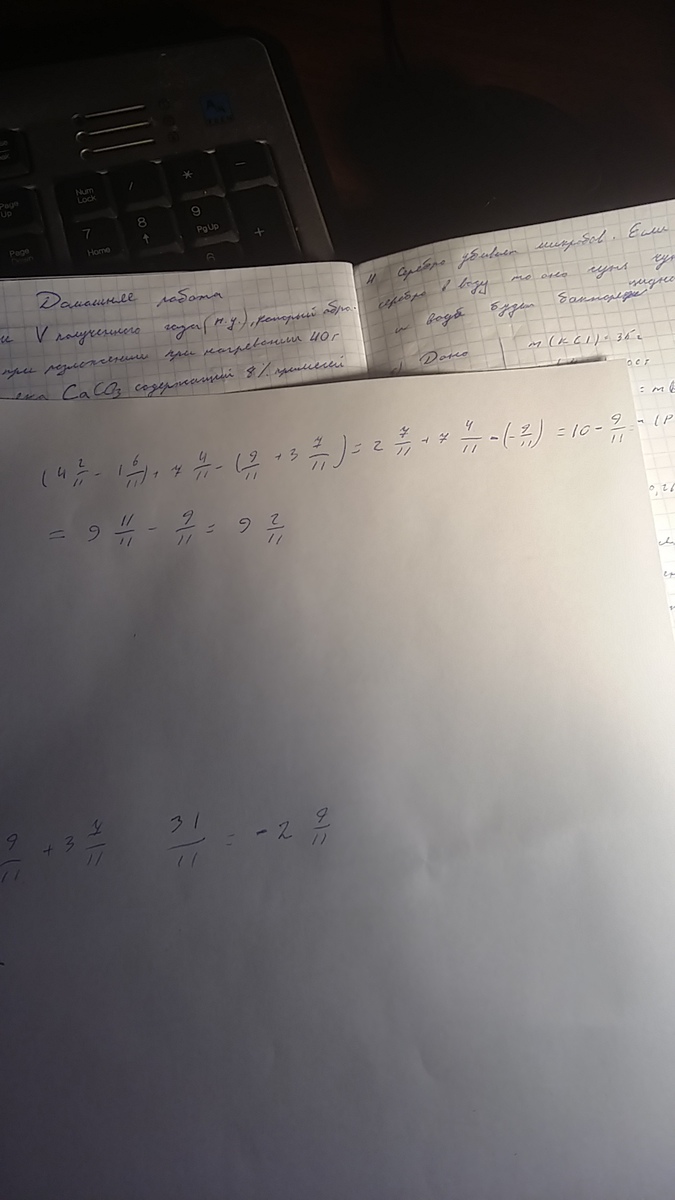 Num Lock
/
*
-
7 Home
8
9 PgUp
+
Page Up
Page Down
6
Домашняя работа
V полученного газа (н.у.), который обра-
при разложении при нагревании 40 г
CaCO3 содержащий 8% примесей
Серебро убивает микробов. Если
серебро в воду то оно
и вода будет
Дано
m(KCl) = 35 г
(4 2/11 - 1 6/11) + 7 4/11 - (9/11 + 3 7/11) = 2 7/11 + 7 4/11 - (-9/11) = 10 - 9/11 =
= 9 11/11 - 9/11 = 9 2/11
9/11 + 3 7/11 31/11 = -2 9/11